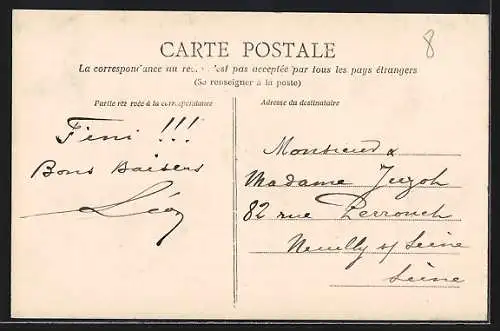 8
CARTE POSTALE
La correspondance au rec.. n'est pas acceptée par tous les pays étrangers
(Se renseigner à la poste)
Partie réservée à la correspondance
Adresse du destinataire
Fini !!!
Bons Baisers
Léon
Monsieur &
Madame
82 rue Perronet
Neuilly s/ Seine
Seine